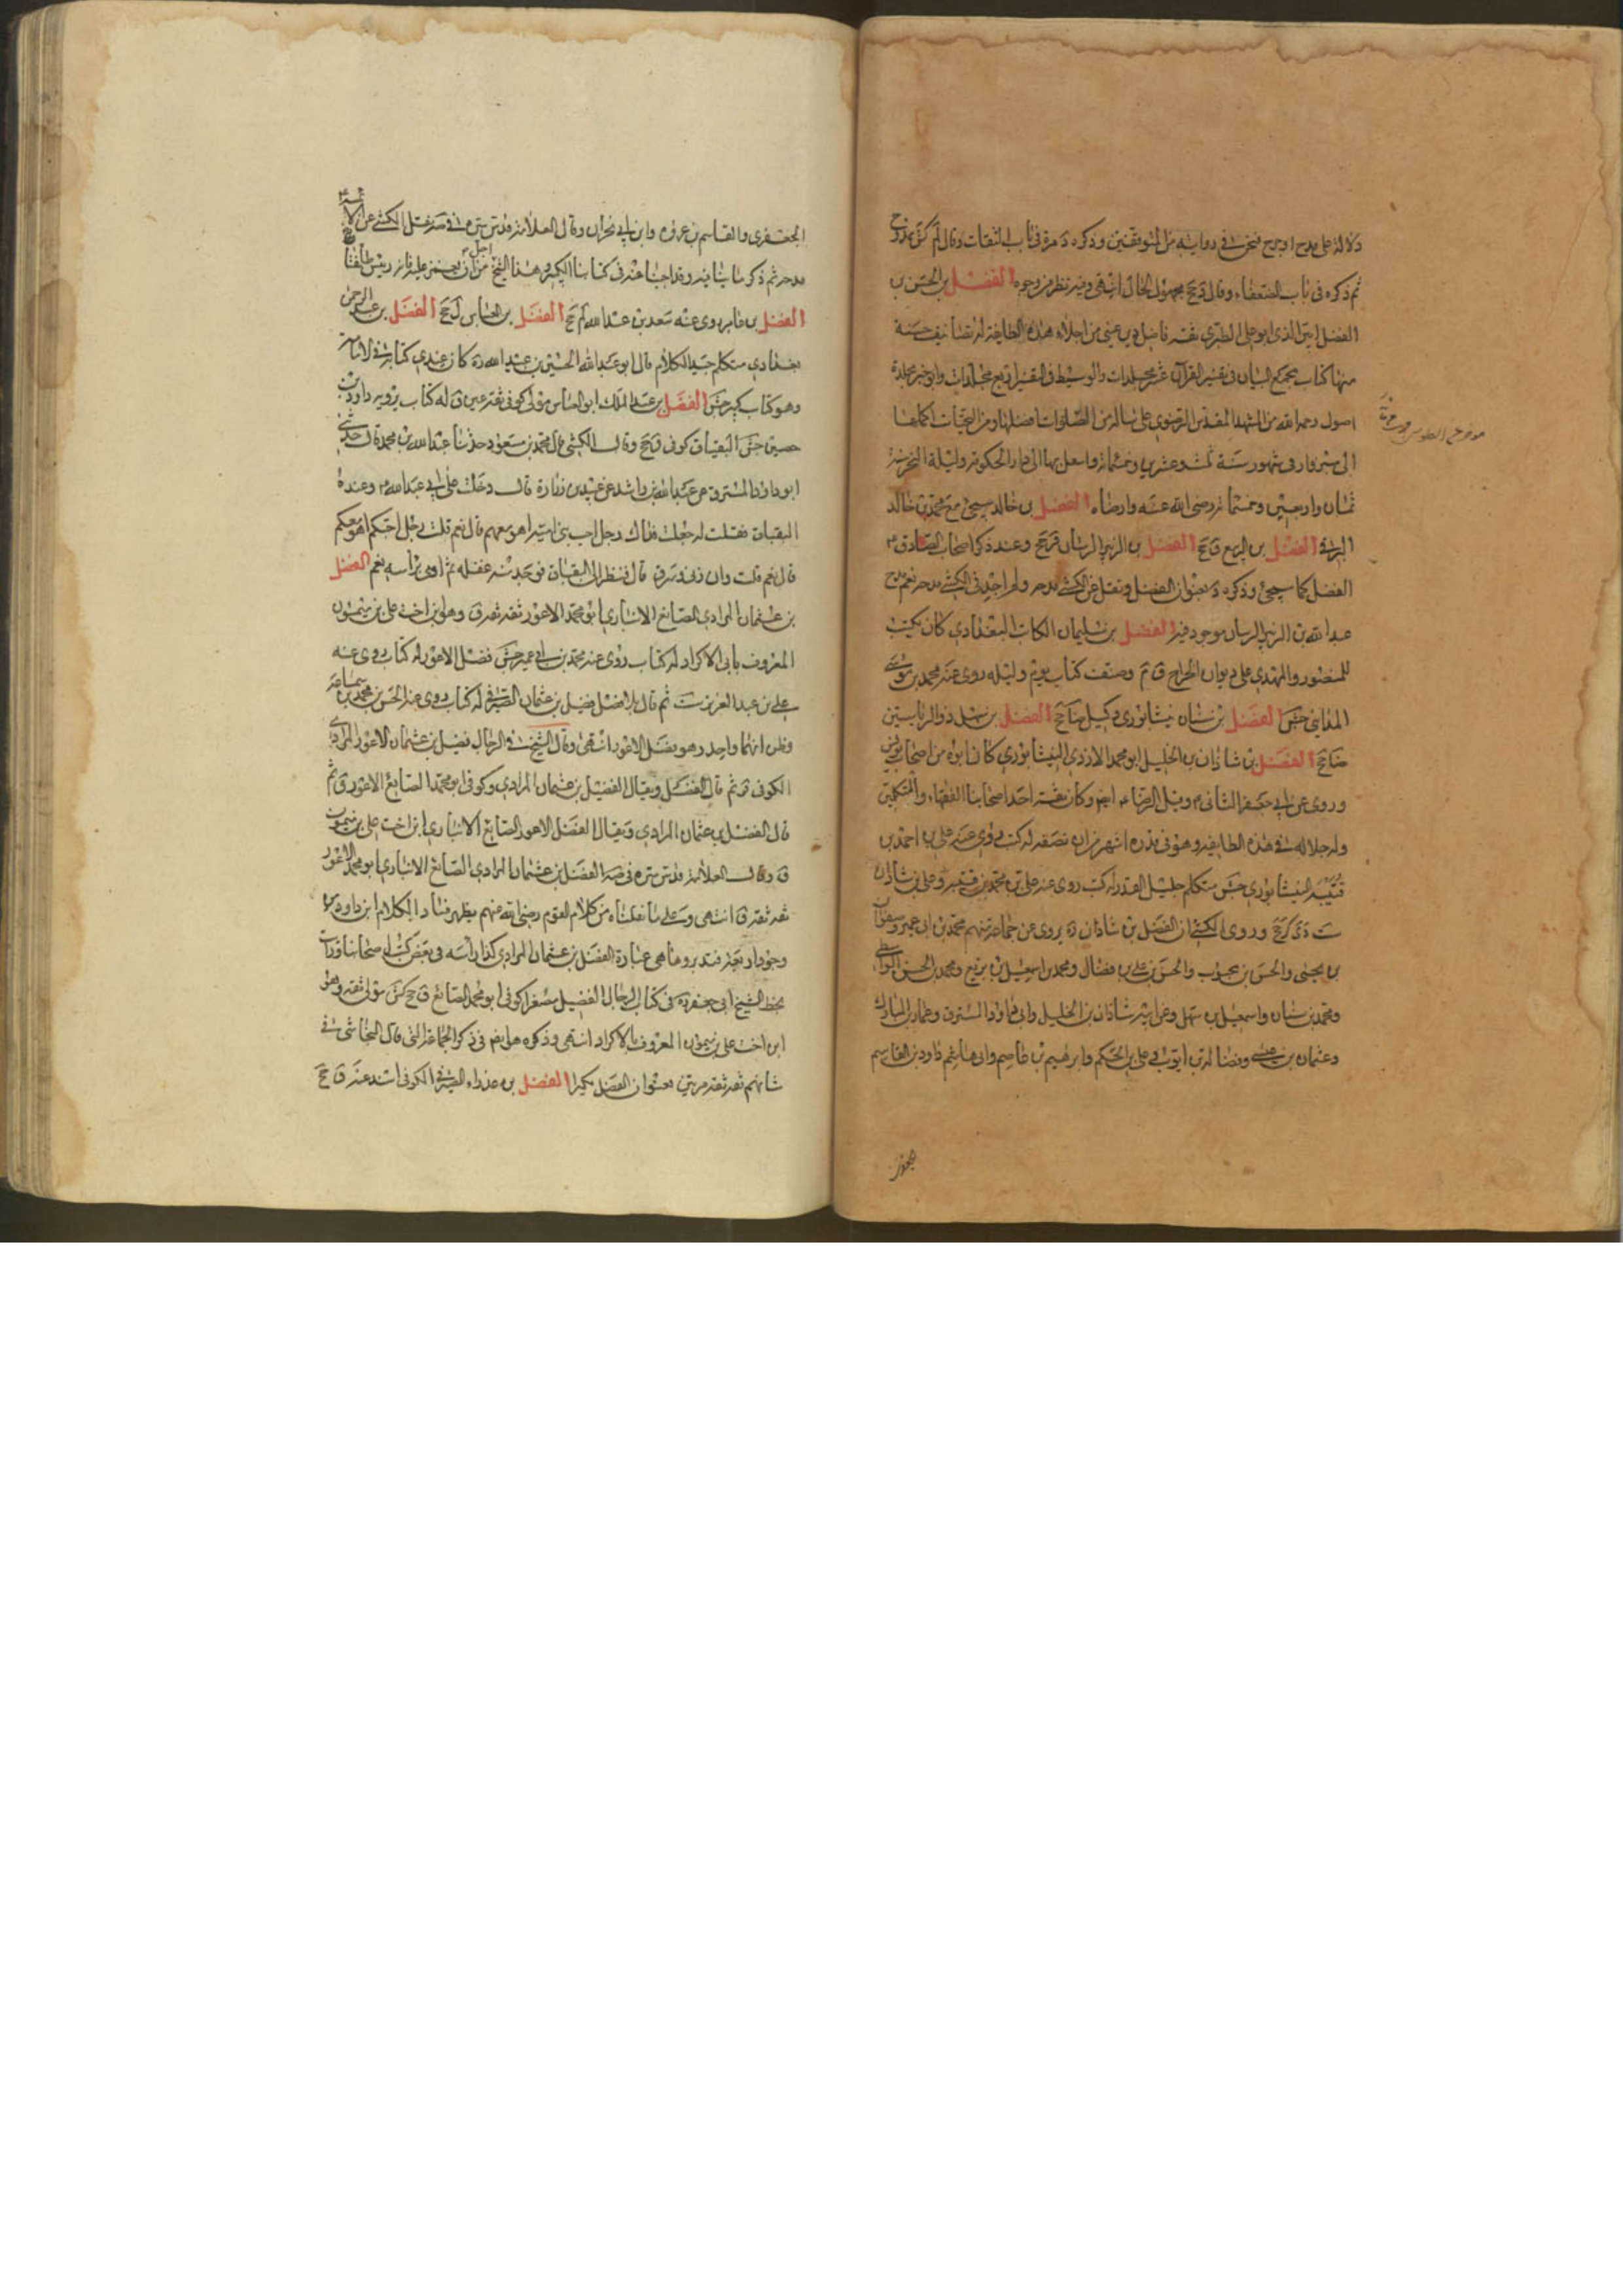 دلالة على مدح او جرح فنحن في روايته من المتوقفين وذكره د مرة في باب الثقات وقال لم كش ممدوح
ثم ذكره في باب الضعفاء وقال د جخ مجهول الحال انتهى وفيه نظر من وجوه الفضل بن الحسن بن
الفضل امين الدين ابو على الطبرسي ثقة فاضل دين عين من اجلاء هذه الطايفة له تصانيف حسنة
منها كتاب مجمع البيان في تفسير القرآن عشر مجلدات والوسيط في التفسير اربع مجلدات والوجيز مجلدة
اصول رحمه الله من المشهد المقدس الرضوي على ساكنه من الصلوات افضلها ومن التحيات اكملها
الى سبزوار في شهور سنة ثلث وعشرين وخمسمائة وانتقل بها الى دار الخلود ليلة النحر سنة
ثمان واربعين وخمسمائة رضى الله عنه وارضاه الفضل بن خالد سيجئ مع محمد بن خالد
البرقي الفضل بن الربيع ق جخ الفضل بن الزبير الرسان قر جخ وعند ذكر اصحاب الصادق ع
الفضل كما سيجئ وذكره د بعنوان الفضل ونقل عن الكشي مدحه ولم اجد في الكشي مدحه نعم مدح
عبد الله بن الزبير الرسان موجود فيه الفضل بن سليمان الكاتب البغدادي كان يكتب
للمنصور والمهدي على ديوان الخراج ق م وصنف كتاب يوم وليلة روى عنه محمد بن موسى
المدايني جش الفضل بن سنان نيشابوري وكيل ضا جخ الفضل بن سهل ذو الرياستين
ضا جخ الفضل بن شاذان بن الخليل ابو محمد الازدي النيشابوري كان ابوه من اصحاب يونس
وروى عن ابي جعفر الثاني ع وقيل الرضا ع ايضا وكان ثقة احد اصحابنا الفقهاء والمتكلمين
وله جلالة في هذه الطايفة وهو في قدره اشهر من ان نصفه له كتب روى عنه على بن احمد بن
قتيبة النيشابوري جش متكلم جليل القدر له كتب روى عنه على بن محمد بن قتيبة وعلى بن شاذان
ست دى كر جخ وروى الكشي ان الفضل بن شاذان ره يروى عن جماعة منهم محمد بن ابي عمير وصفوان
بن يحيى والحسن بن محبوب والحسن بن على بن فضال ومحمد بن اسمعيل بن بزيع ومحمد بن الحسن الواسطي
ومحمد بن سنان واسمعيل بن سهل وعن ابيه شاذان بن الخليل وابي داود المسترق وعمار بن المبارك
وعثمان بن عيسى وفضالة بن ايوب وعلى بن الحكم وابرهيم بن عاصم وابي هاشم داود بن القاسم
الجعفرى والقاسم بن عروه وابن ابي نجران وقال العلامة قدس سره في صه نقل الكشي عن الائمة ع
مدحه ثم ذكر ما ينافيه وقد اجبنا عنه في كتابنا الكبير وهذا الشيخ اجل من ان يغمز عليه فانه رئيس طائفتنا
الفضل بن عامر روى عنه سعد بن عبد الله لم جخ الفضل بن العباس ل جخ الفضل بن عبد الرحمن
بغدادي متكلم جيد الكلام قال ابو عبد الله الحسين بن عبيد الله ره كان عندي كتابه في الامامة
وهو كتاب كبير جش الفضل بن عبد الملك ابو العباس مولى كوفي ثقة عين ق له كتاب يرويه داود بن
حصين جش البقباق كوفي ق جخ وقال الكشي قال محمد بن مسعود حدثنا عبد الله بن محمد قال حدثني
ابو داود المسترق عن عبد الله بن راشد عن عبيد بن زرارة قال دخلت على ابي عبد الله ع وعنده
البقباق فقلت له جعلت فداك رجل احب بني امية اهو معهم قال نعم قلت رجل احبكم اهو معكم
قال نعم قلت وان زنى وسرق قال فنظر الى البقباق فوجد منه غفله ثم اومى براسه نعم الفضل
بن عثمان المرادي الصايغ الانباري ابو محمد الاعور ثقة ثقة ق وهو ابن اخت على بن ميمون
المعروف بابي الاكراد له كتاب روى عنه محمد بن ابي عمير جش فضل الاعور له كتاب روى عنه
على بن عبد العزيز ست ثم قال الفضل فضيل بن عثمان الصيرفي له كتاب روى عنه الحسن بن محمد بن سماعة
وظن انهما واحد وهو فضل الاعور انتهى وقال الشيخ في الرجال فضيل بن عثمان الاعور المرادي
الكوفي قر ثم قال الفضل ويقال الفضيل بن عثمان المرادي وكوفي ابو محمد الصايغ الاعور ق ثم
قال الفضل بن عثمان المرادي ويقال الفضل الاعور الصايغ الانباري ابن اخت على بن ميمون
ق وقال العلامة قدس سره في صه الفضل بن عثمان المرادي الصايغ الانباري ابو محمد الاعور
ثقة ثقة ق انتهى وعلى ما نقلناه من كلام القوم رضى الله عنهم يظهر فساد الكلام ابن داود من
وجوه فتدبر وها هي عبارة الفضل بن عثمان المرادي كذا رأيته في بعض كتب اصحابنا ورأيت
بخط الشيخ ابي جعفر ره في كتاب الرجال الفضيل مصغرا كوفي ابو محمد الصايغ ق جخ كش مولى ثقة وهو
ابن اخت على بن ميمون المعروف بابي الاكراد انتهى وذكره هو ايضا في ذكر الجماعة التي قال النجاشي في
شانهم ثقة ثقة مرتين بعنوان الفضل مكبرا الفضل بن عذراء الصيرفي الكوفي اسند عنه ق جخ